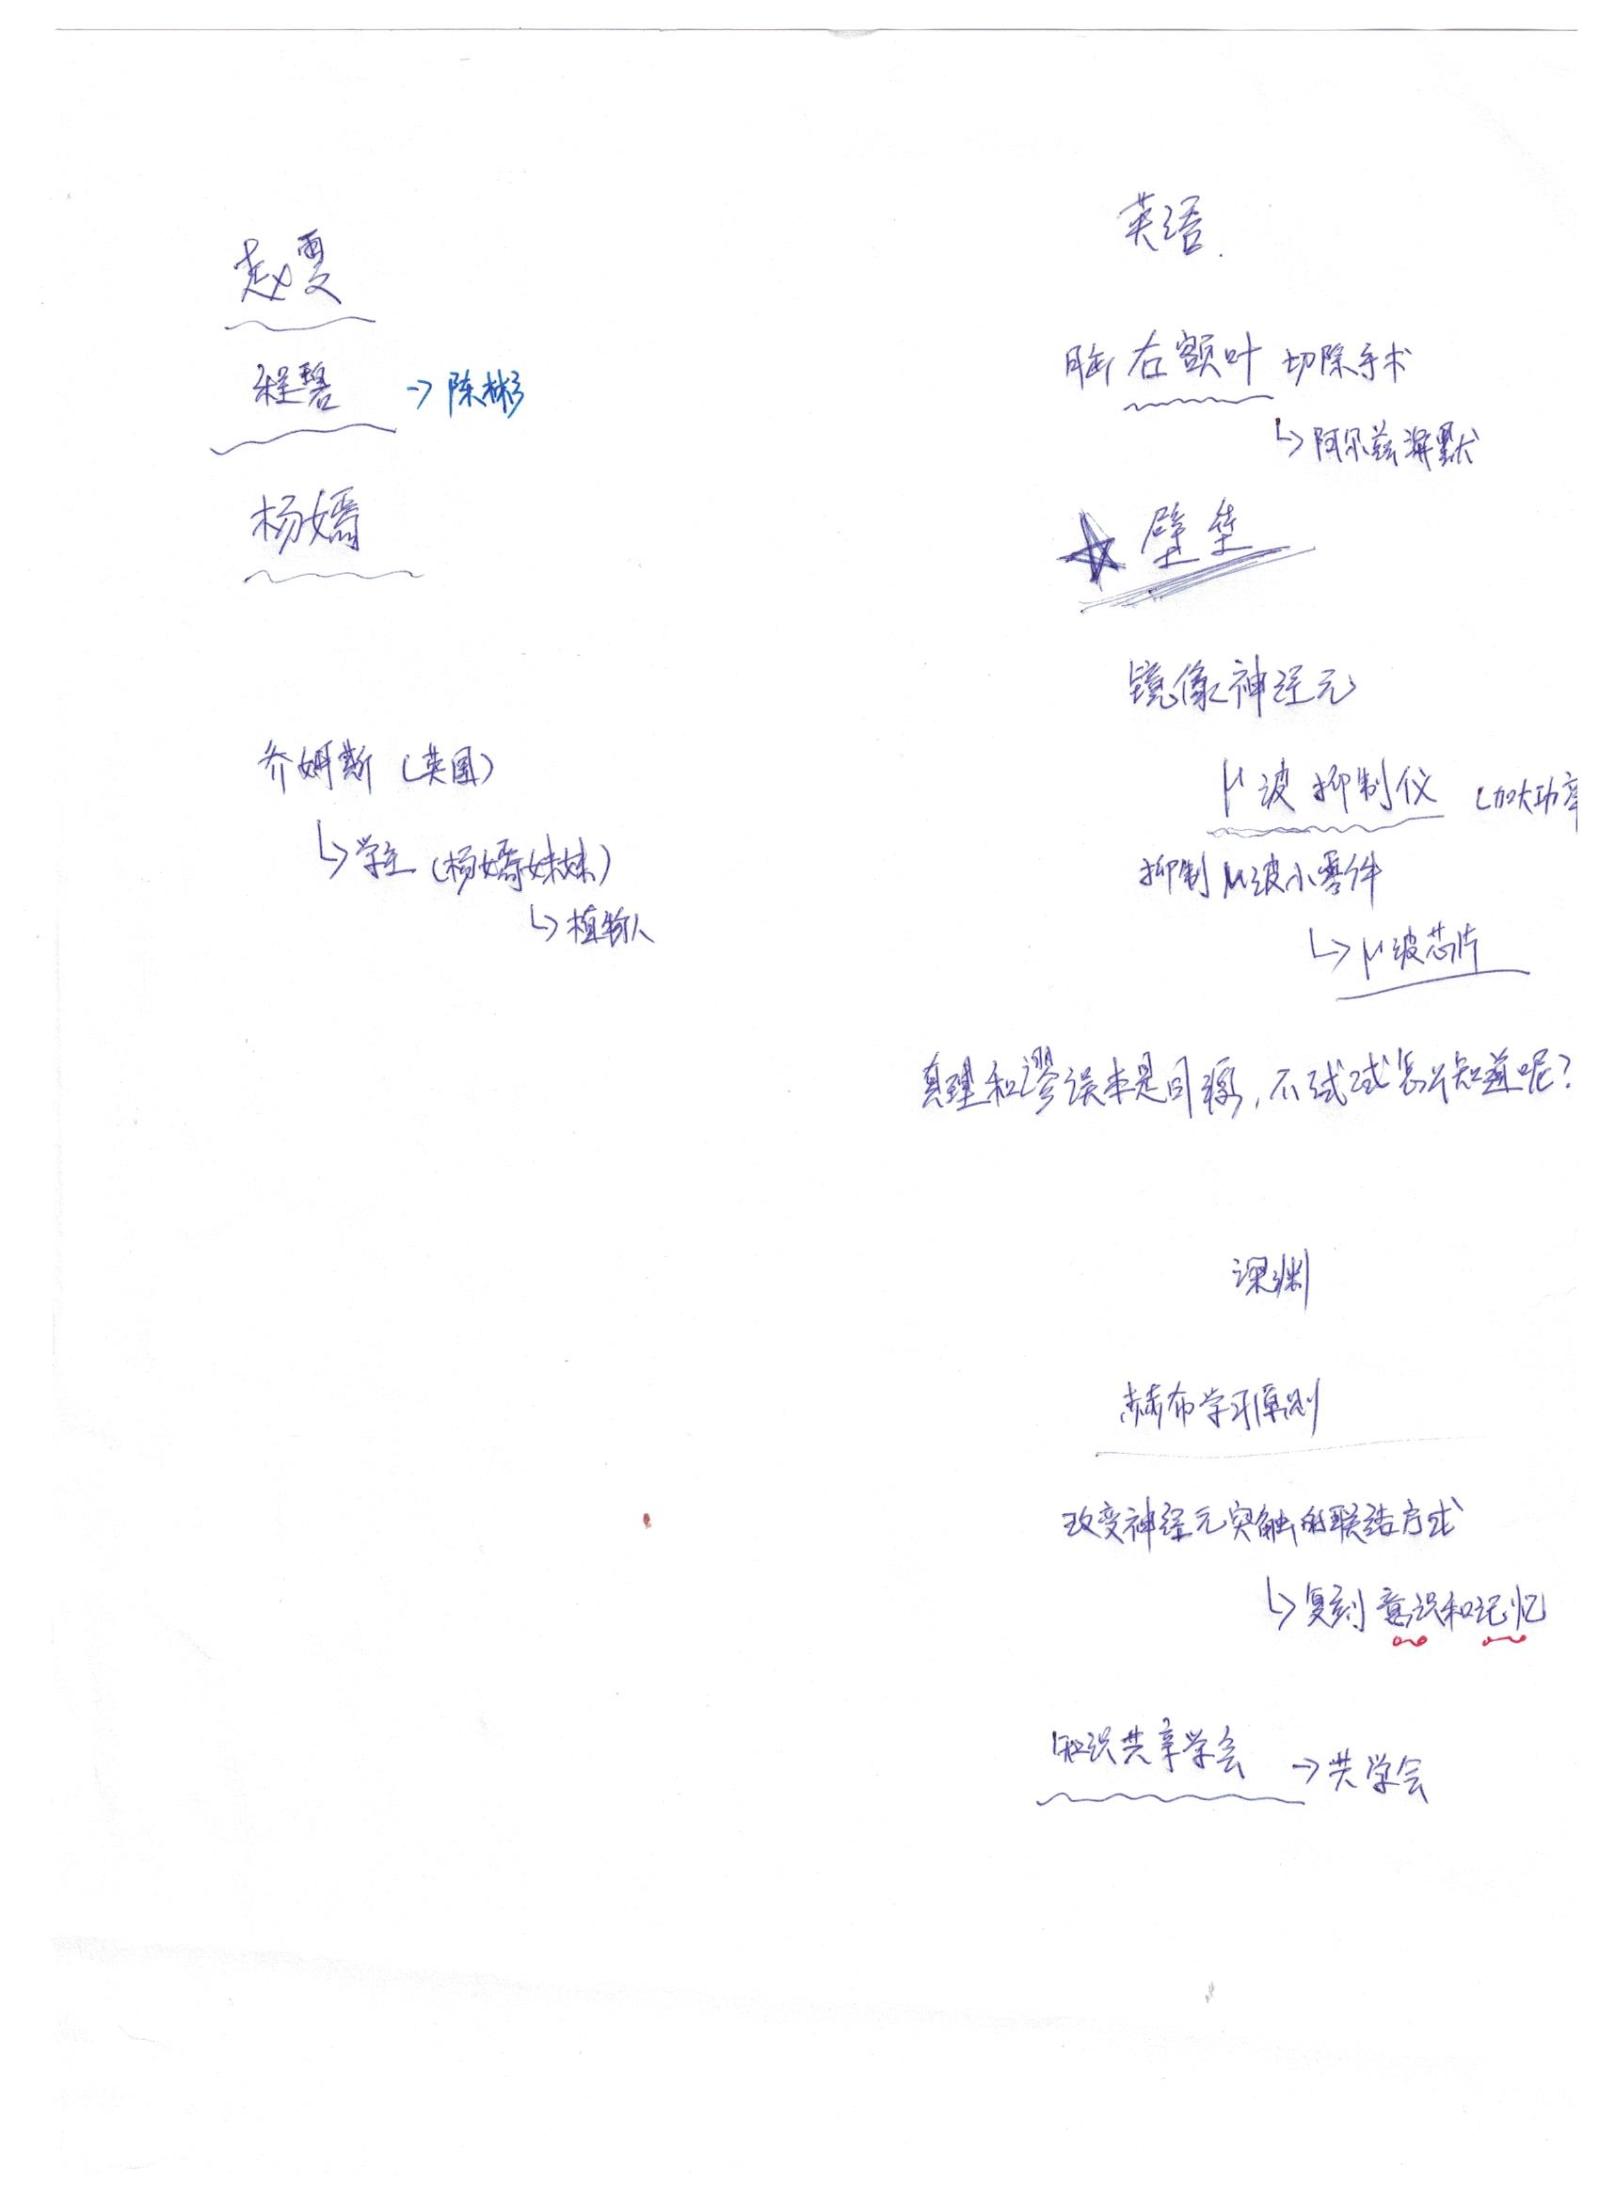 赵雯
程碧 → 陈彬
杨嫣
乔姆斯(英国)
↳学生(杨嫣妹妹)
↳植物人
英语.
脑右额叶切除手术
↳阿尔兹海默
☆壁垒
镜像神经元
μ波抑制仪 (加大功率
抑制μ波小零件
↳μ波芯片
真理和谬误本是同源,不试试怎么知道呢?
深渊
赫布学习原则
改变神经元突触的联结方式
↳复刻意识和记忆
知识共享学会 → 共学会